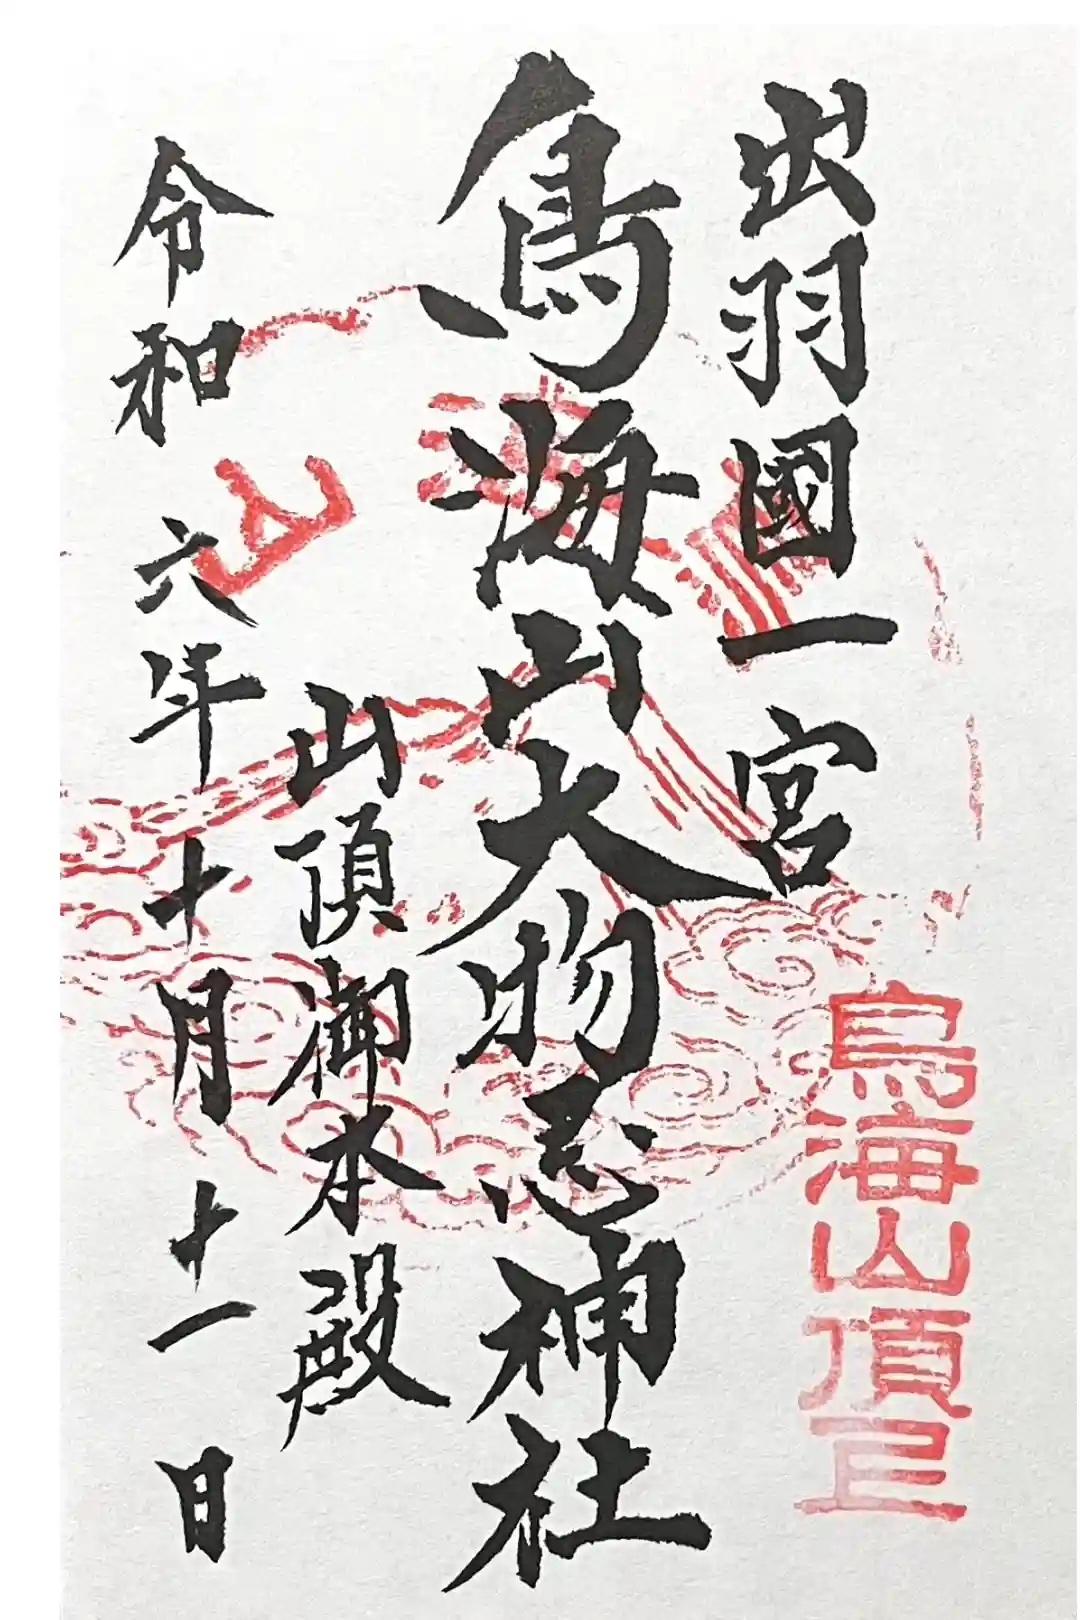 出羽國一宮
鳥海山大物忌神社
山頂御本殿
令和六年十月十一日
鳥海山
鳥海山頂上